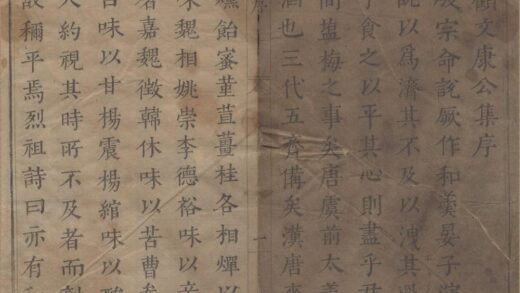 顧文康公集序
殷宗命說厥作和羹晏子演
說以為濟其不及以洩其過
子食之以平其心則盡乎君
間塩梅之事矣唐虞前太羹
酒也三代五齊備矣漢唐來
序 一
飴蜜菫荁薑桂各相燀以
味魏相姚崇李德裕味以辛
者嘉魏徵韓休味以苦曹參
味以甘楊震楊綰味以酸
人約視其時所不及者而劑
故稱平焉烈祖詩曰亦有和